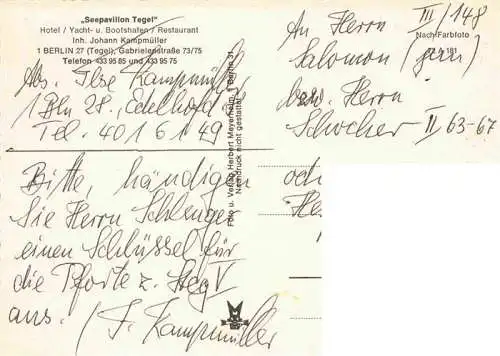 „Seepavillon Tegel"
Hotel / Yacht- u. Bootshafen / Restaurant
Inh. Johann Kampmüller
1 BERLIN 27 (Tegel), Gabrielenstraße 73/75
Telefon 433 95 85 und 433 95 75
Abs. Ilse Kampmüller
1 Bln 28, Edelhofd
Tel. 401 61 49
Bitte, händigen
Sie Herrn Schlenger
einen Schlüssel für
die Pforte z. Steg V
aus. / J. Kampmüller
Foto u. Verlag Herbert Meyerheim, 1 Berlin 31
Nachdruck nicht gestattet
III/148
Nach Farbfoto
181
An Herrn
Salomon (jun)
bzw. Herrn
Schocher II 63-67
och
He